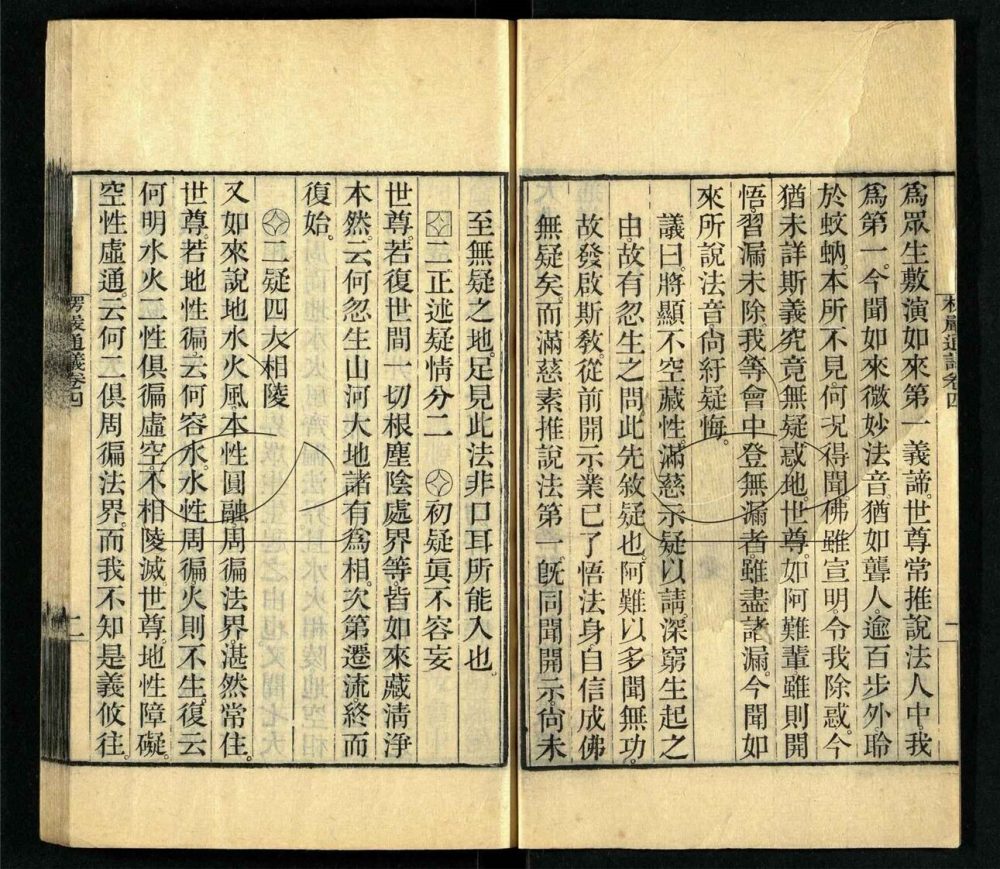 楞嚴通議卷四
一
爲眾生敷演如來第一義諦。世尊常推說法人中我
爲第一。今聞如來微妙法音。猶如聾人。逾百步外聆
於蚊蚋。本所不見。何況得聞。佛雖宣明。令我除惑。今
猶未詳斯義究竟無疑惑地。世尊。如阿難輩雖則開
悟。習漏未除。我等會中登無漏者。雖盡諸漏。今聞如
來所說法音。尙紆疑悔。
議曰。將顯不空藏性。滿慈示疑以請深窮生起之
由。故有忽生之問。此先敘疑也。阿難以多聞無功。
故發啟斯敎。從前開示。業已了悟法身。自信成佛
無疑矣。而滿慈素推說法第一。旣同聞開示。尙未
至無疑之地。足見此法非口耳所能入也。
二正述疑情分二 初疑眞不容妄
世尊。若復世間一切根塵陰處界等。皆如來藏淸淨
本然。云何忽生山河大地諸有爲相。次第遷流。終而
復始。
二疑四大相陵
又如來說地水火風。本性圓融。周徧法界。湛然常住。
世尊。若地性徧。云何容水。水性周徧。火則不生。復云
何明水火二性俱徧虛空。不相陵滅。世尊。地性障礙。
空性虛通。云何二俱周徧法界。而我不知是義攸往。
楞嚴通議卷四
二